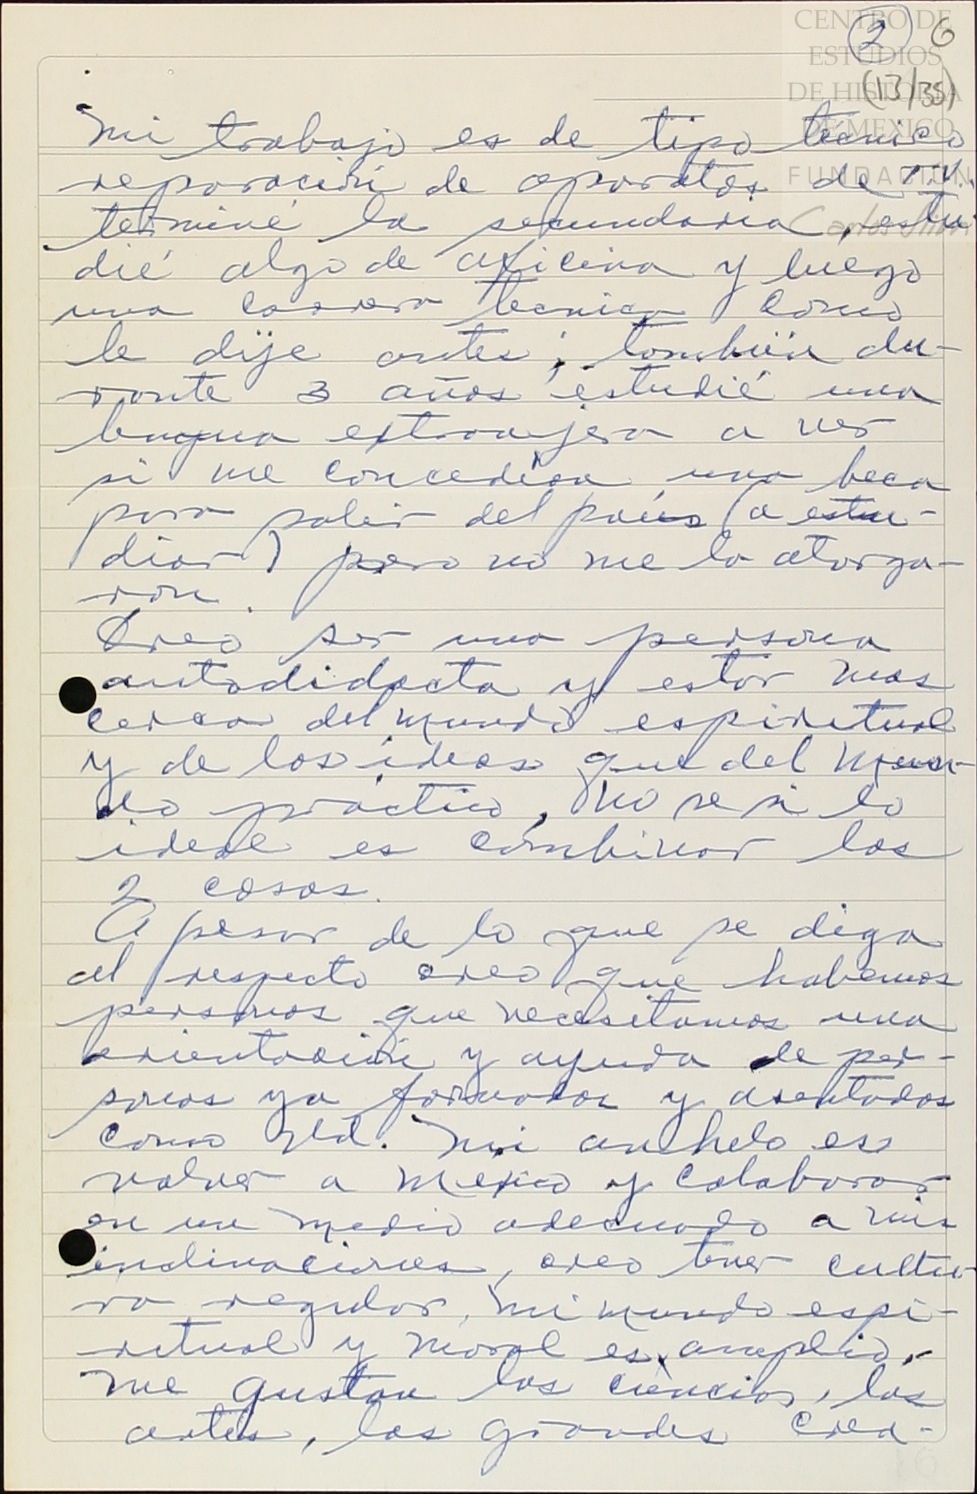 CENTRO DE
ESTUDIOS
DE HISTORIA
DE MEXICO
FUNDACION
Carlos Slim
2 6
(13/35)
Mi trabajo es de tipo técnico
reparación de aparatos de T.V.
terminé la secundaria, estu
dié algo de oficina y luego
una carrera tecnica como
le dije antes; también du-
rante 3 años estudié una
lengua extranjera a ver
si me concedian una beca
para salir del país (a estu-
diar) pero no me la otorga-
ron.
Creo ser una persona
autodidacta y estar mas
cerca del mundo espiritual
y de las ideas que del mun-
do práctico, no se si lo
ideal es combinar las
2 cosas.
A pesar de lo que se diga
al respecto creo que habemos
personas que necesitamos una
orientación y ayuda de per-
sonas ya formadas y asentadas
como Ud. Mi anhelo es
volver a México y colaborar
en un medio adecuado a mis
inclinaciones, creo tener cultu
ra regular, mi mundo espi-
ritual y moral es amplio.-
Me gustan las ciencias, las
artes, las grandes crea-